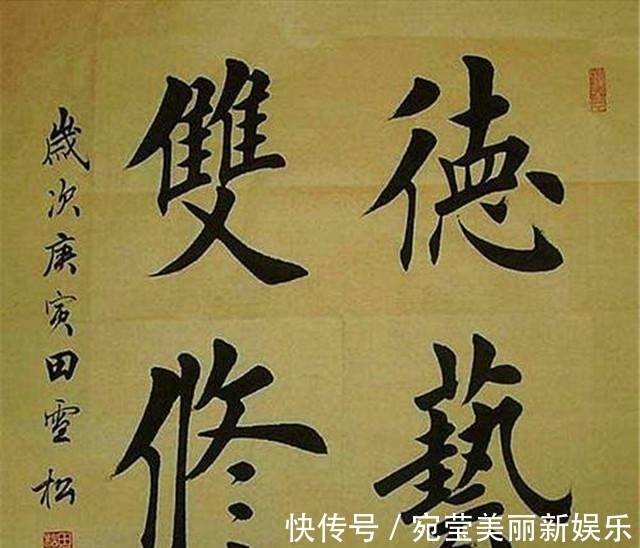 德藝
雙修
歲次庚寅田雪松
快传号／宛莹美丽新娱乐